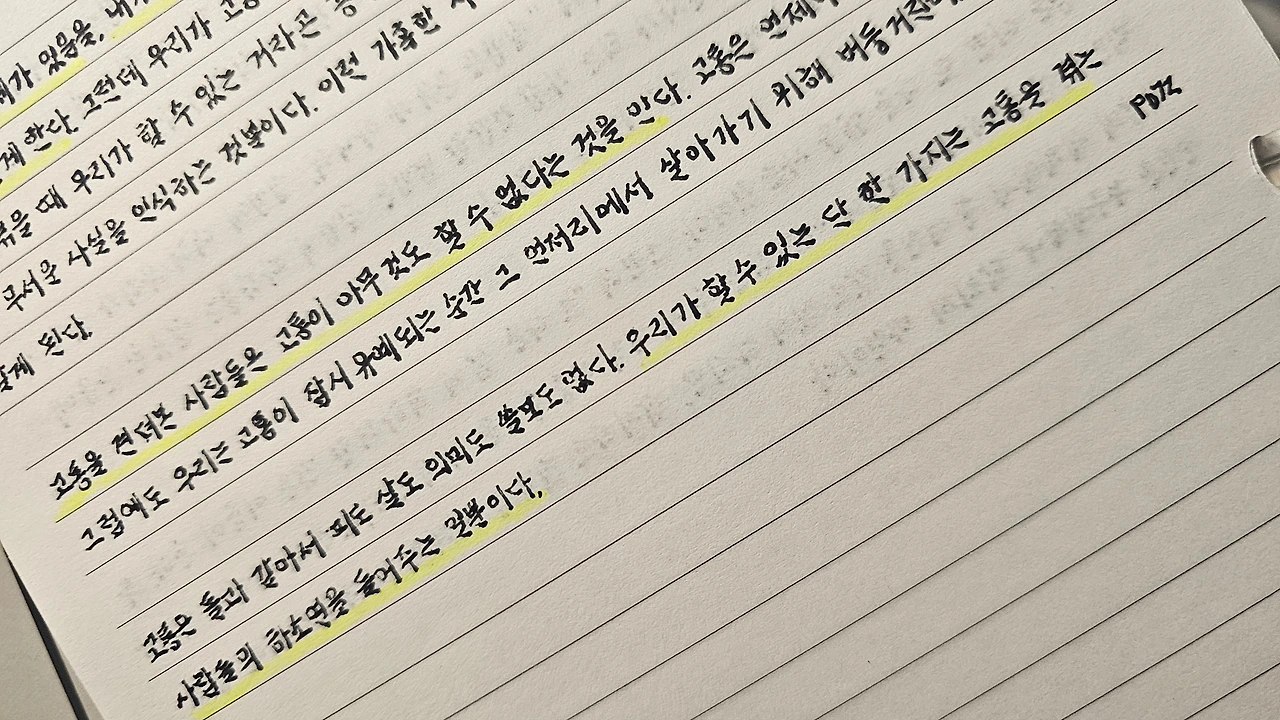 해가 있음을, 내가
게 한다. 그런데 우리가 고통
겪을 때 우리가 할 수 있는 거라곤
무서운 사실을 인식하는 것뿐이다. 이런 가혹한
알게 된다.
고통을 견뎌본 사람들은 고통이 아무것도 할 수 없다는 것을 안다. 고통은 언제나
그럼에도 우리는 고통이 잠시 유예되는 순간 그 언저리에서 살아가기 위해 버둥거린다
고통은 돌과 같아서 피도 살도 의미도 쓸모도 없다. 우리가 할 수 있는 단 한 가지는 고통을 겪는
사람들의 하소연을 들어주는 일뿐이다.